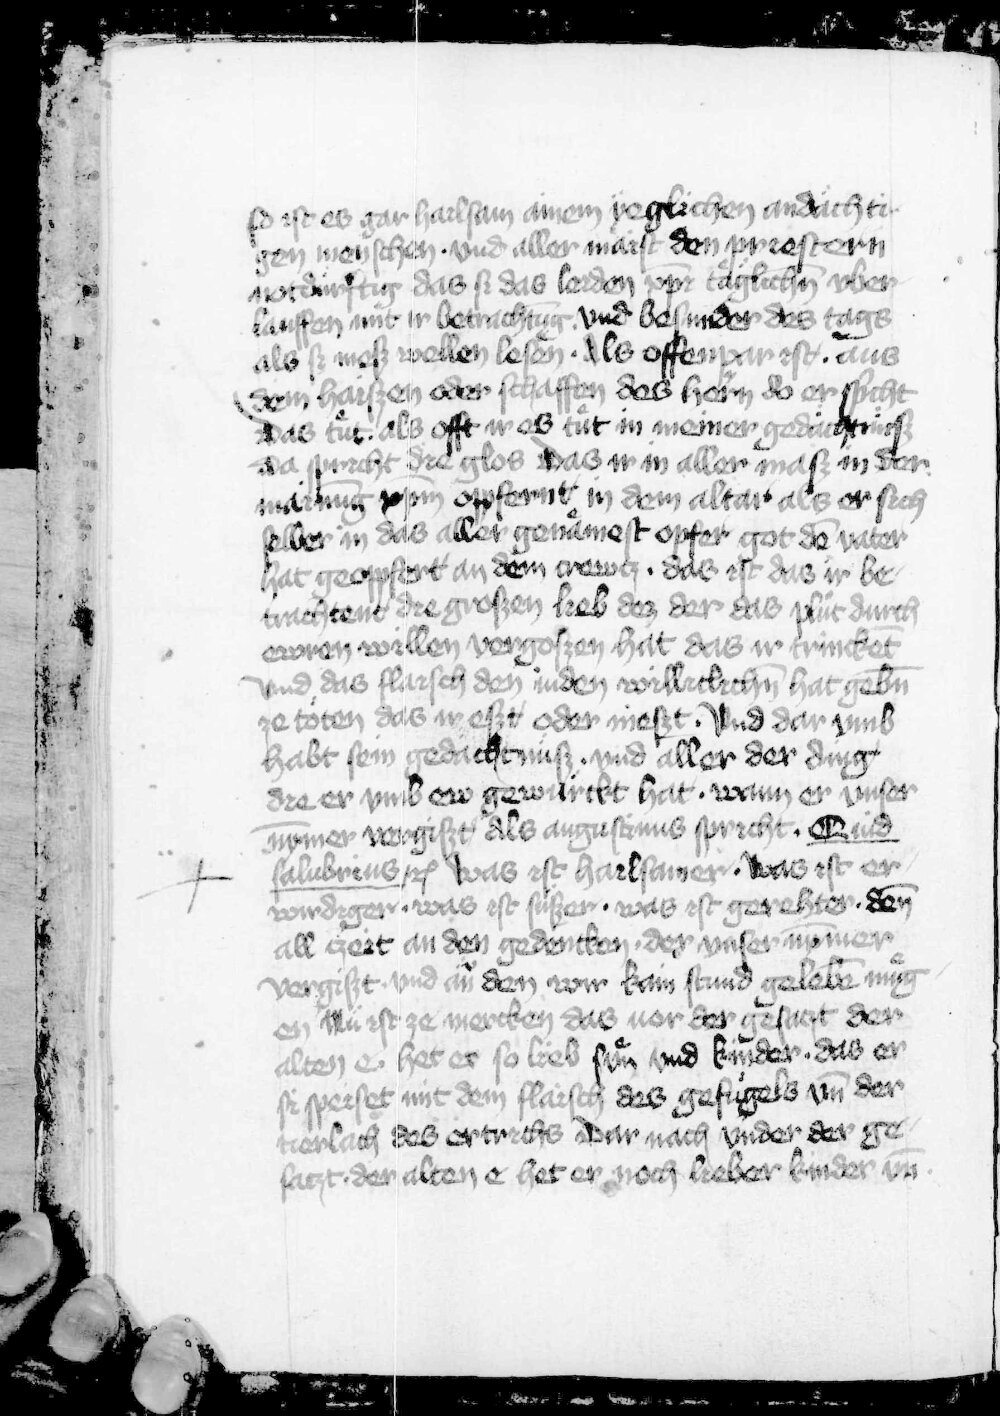 so ist es gar hailsam ainem yeglichen andächti-
gen menschen. vnd aller maist den priestern
notdürftig das si das leiden xp̄i täglichn̄ vber
lauffen mit ir betrachtūg. vnd besunder des tags
als si mesz wellen lesen. Als offenpar ist. aus
dem haiszen oder schaffen des hern̄ do er spͥcht
Das tůt. als offt ir es tůt in meiner gedächtnüsz
Da spricht die glos Das ir in aller masz in der
mainūg xp̄m opfernt in dem altar als er sich
selber in das aller genämest opfer got dē vater
hat geopfert an dem crewtz. das ist das ir be-
trachtent die groszen lieb dez der das plůt durch
ewren willen vergoszen hat das ir trinckēt
Vnd das flaisch den iuden williklichn̄ hat gebn̄
ze töten das ir eszt oder nieszt. Vnd dar vmb
habt sein gedächtnüsz. vnd aller der ding
die er vmb ew gewürckt hat. wann er vnser
nȳmer vergiszt Als augustinus spricht. Quid
salubrius rc̄ Was ist hailsamer. Was ist er
wirdiger. was ist süszer. was ist gerehter. den̄
all czeit an den gedencken. der vnser nȳmer
vergiszt. vnd an̄ den wir kain stund gelebn̄ můg
en Nu ist ze mercken das vor der gesatzt der
alten e. het er so lieb sün̄ vnd kinder. das er
si speiset mit dem flaisch des gefügels vn̄ der
tierlach des ertrichs Dar nach vnder der ge-
satzt. der alten e het er noch lieber kinder vn̄